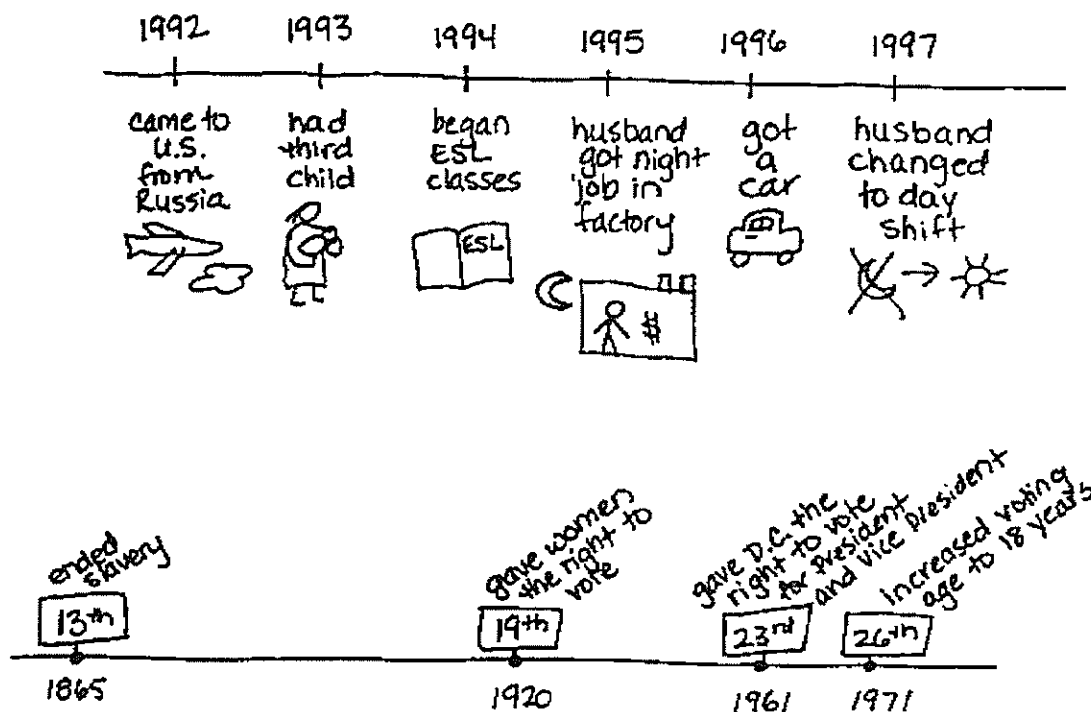 1992 1993 1994 1995 1996 1997
came to
U.S.
from
Russia
had
third
child
began
ESL
classes
husband
got night
job in
factory
got
a
car
husband
changed
to day
shift
ESL
$
ended
slavery
13th
gave women
the right to
vote
19th
gave D.C. the
right to vote
for President
and Vice President
23rd
increased voting
age to 18 years
26th
1865 1920 1961 1971